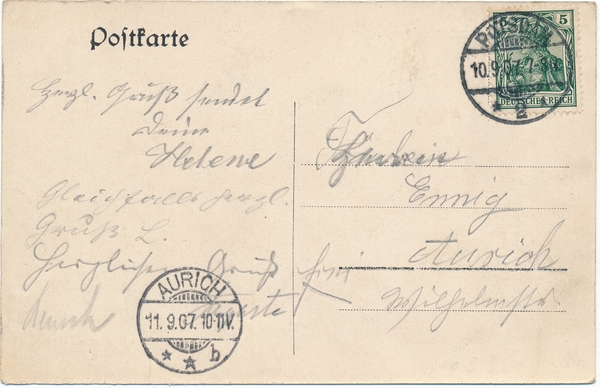 Postkarte
5
DEUTSCHES REICH
POTSDAM
10.9.07. 7-8
* 2 *
Herzl. Gruß sendet
Deine
Helene
Gleichfalls herzl.
Gruß L.
Herzlichen Gruß
Fräulein
Ennig
Aurich
Wilhelmstr
AURICH
11.9.07. 10-11V.
* * b